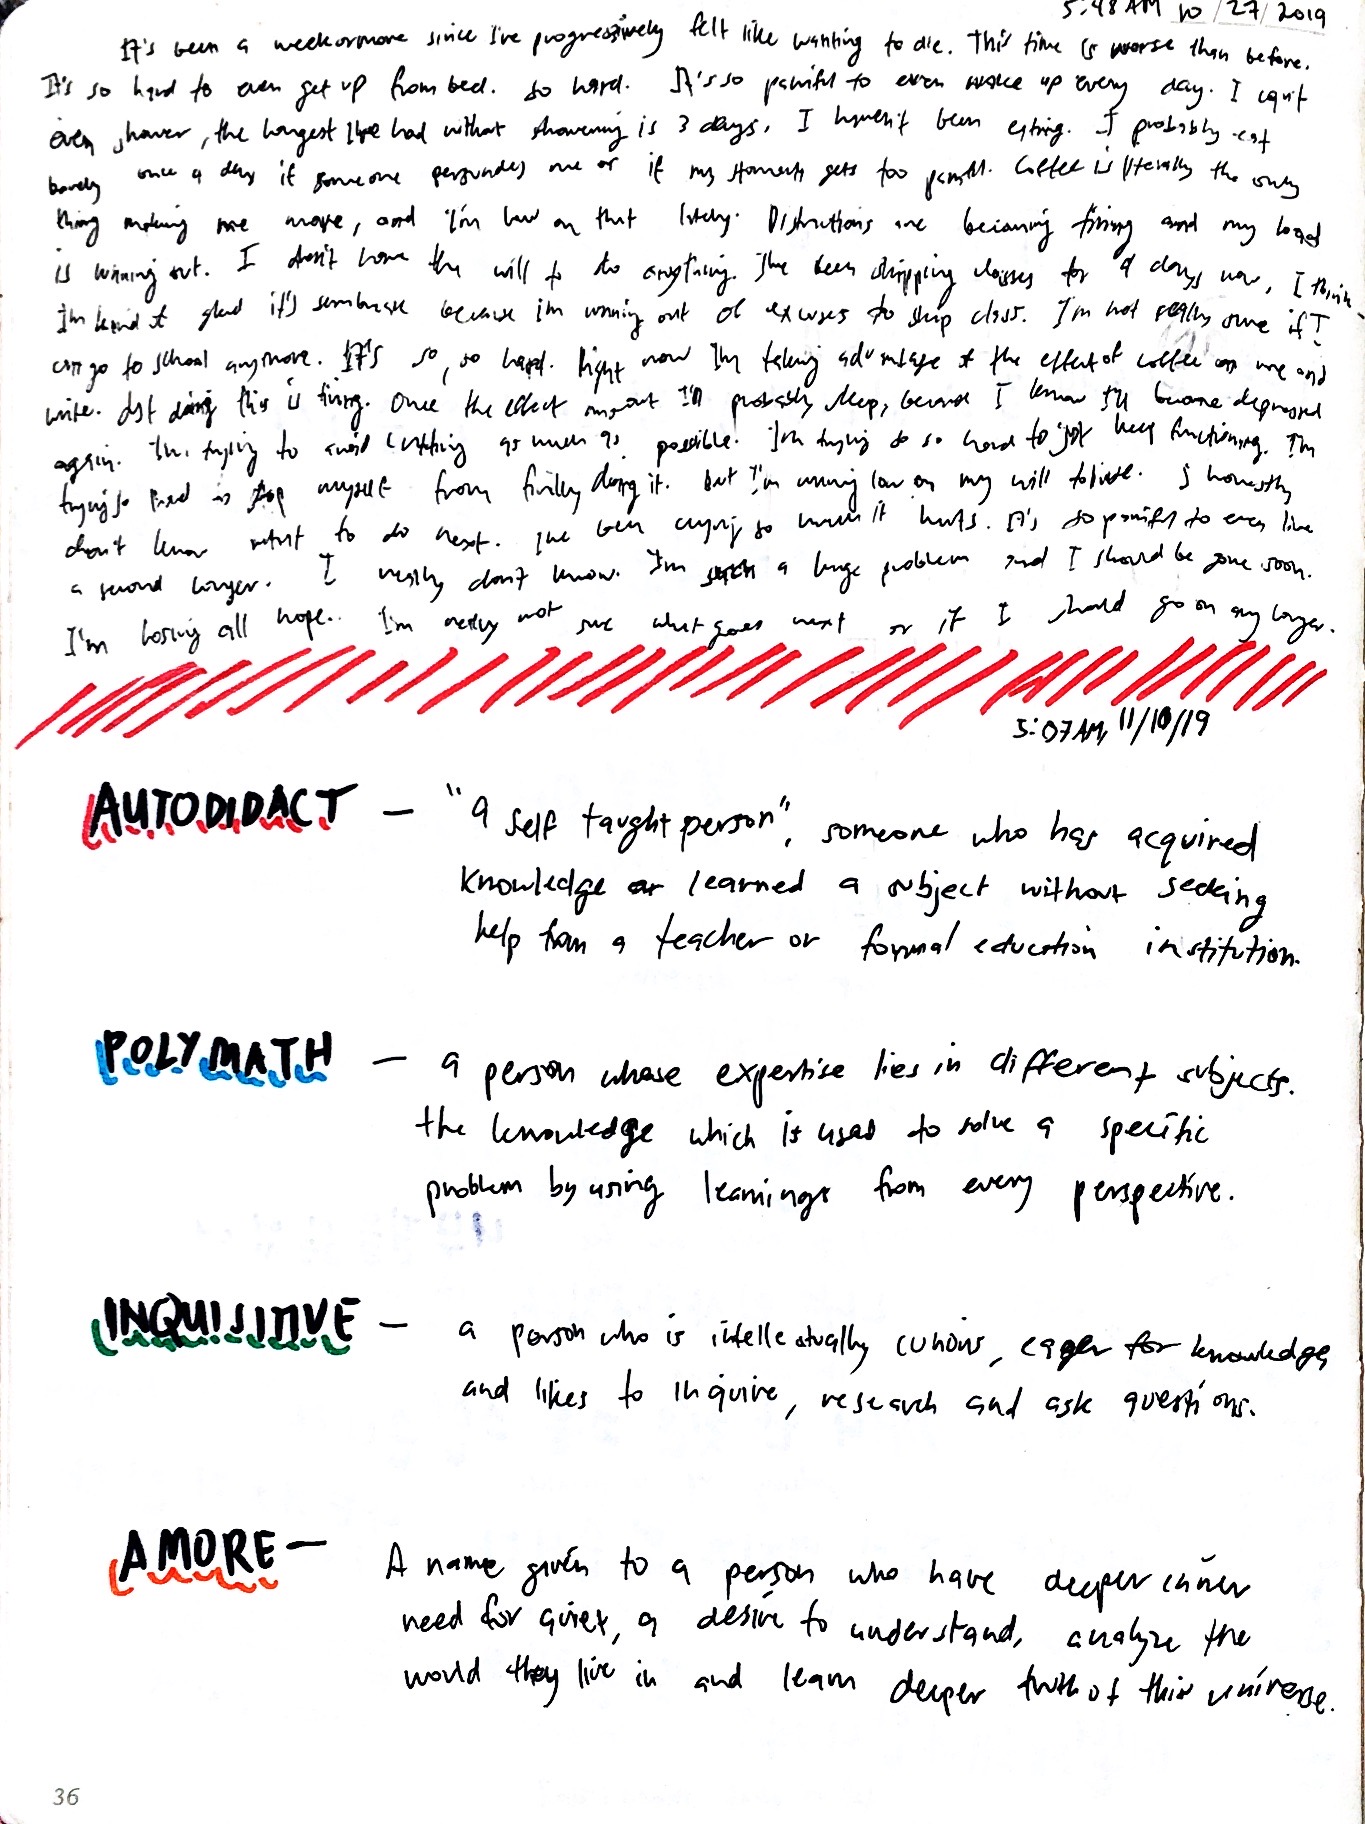 5:48 AM 10/27/2019
It's been a week or more since I've progressively felt like wanting to die. This time is worse than before.
It's so hard to even get up from bed. so hard. It's so painful to even wake up every day. I can't
even shower, the longest I've had without showering is 3 days. I haven't been eating. I probably eat
barely once a day if someone persuades me or if my stomach gets too painful. Coffee is literally the only
thing making me move, and I'm low on that lately. Distractions are becoming tiring and my head
is winning out. I don't have the will to do anything. I've been skipping classes for 4 days now, I think
I'm kind of glad it's sembreak because i'm running out of excuses to skip class. I'm not really sure if I
can go to school anymore. It's so, so hard. Right now I'm taking advantage of the effect of coffee on me and
write. Just doing this is tiring. Once the effect runs out I'll probably sleep, because I know I'll become depressed
again. I'm trying to avoid cutting as much as possible. I'm trying so so hard to just keep functioning. I'm
trying so hard to stop myself from finally doing it. But I'm running low on my will to live. I honestly
don't know what to do next. I've been crying so much it hurts. It's so painful to even live
a second longer. I really don't know. I'm such a huge problem and I should be gone soon.
I'm losing all hope.. I'm really not sure what goes next or if I should go on any longer.
5:07AM, 11/10/19
AUTODIDACT — "a self taught person", someone who has acquired
knowledge or learned a subject without seeking
help from a teacher or formal education institution.
POLYMATH — a person whose expertise lies in different subjects.
the knowledge which is used to solve a specific
problem by using learnings from every perspective.
INQUISITIVE — a person who is intellectually curious, eager for knowledge,
and likes to inquire, research and ask questions.
AMORE — A name given to a person who have deeper inner
need for quiet, a desire to understand, analyze the
world they live in and learn deeper truth of this universe.
36